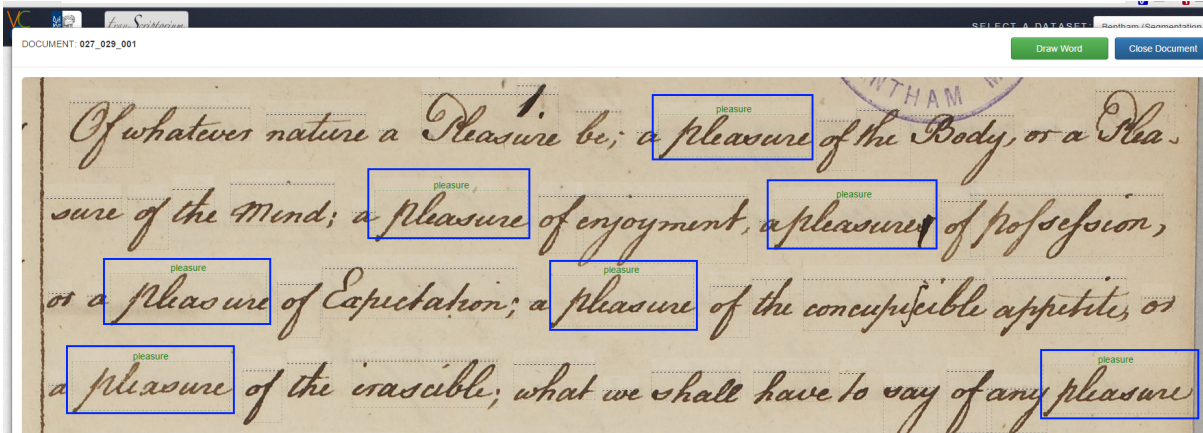 VC tranScriptorium SELECT A DATASET: Bentham (Segmentation
DOCUMENT: 027_029_001 Draw Word Close Document
NTHAM M
pleasure
Of whatever nature a Pleasure be; a pleasure of the Body, or a Plea-
pleasure pleasure
sure of the Mind; a pleasure of enjoyment, a pleasure of possession,
pleasure pleasure
or a pleasure of Expectation; a pleasure of the concupiscible appetite, or
pleasure pleasure
a pleasure of the irascible; what we shall have to say of any pleasure